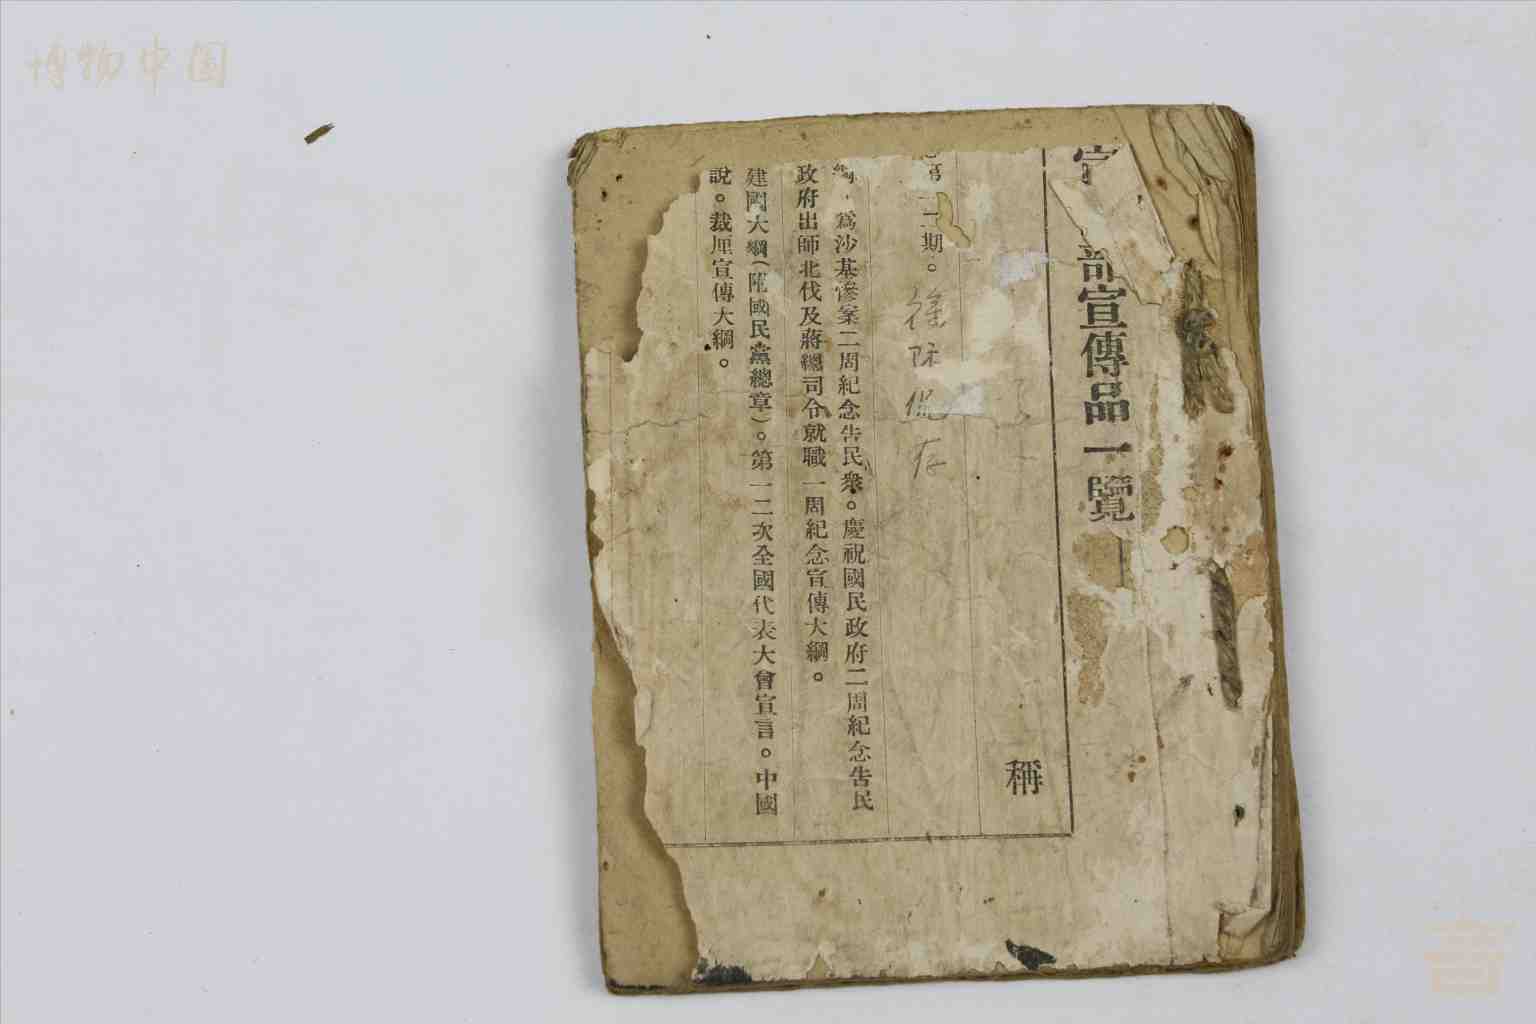 博物中国
部宣傳品一覽
稱
第二期。
保存
爲沙基慘案二周紀念告民衆。慶祝國民政府二周紀念告民
政府出師北伐及蔣總司令就職一周紀念宣傳大綱。
建國大綱（附國民黨總章）。第一二次全國代表大會宣言。中國
說。裁厘宣傳大綱。